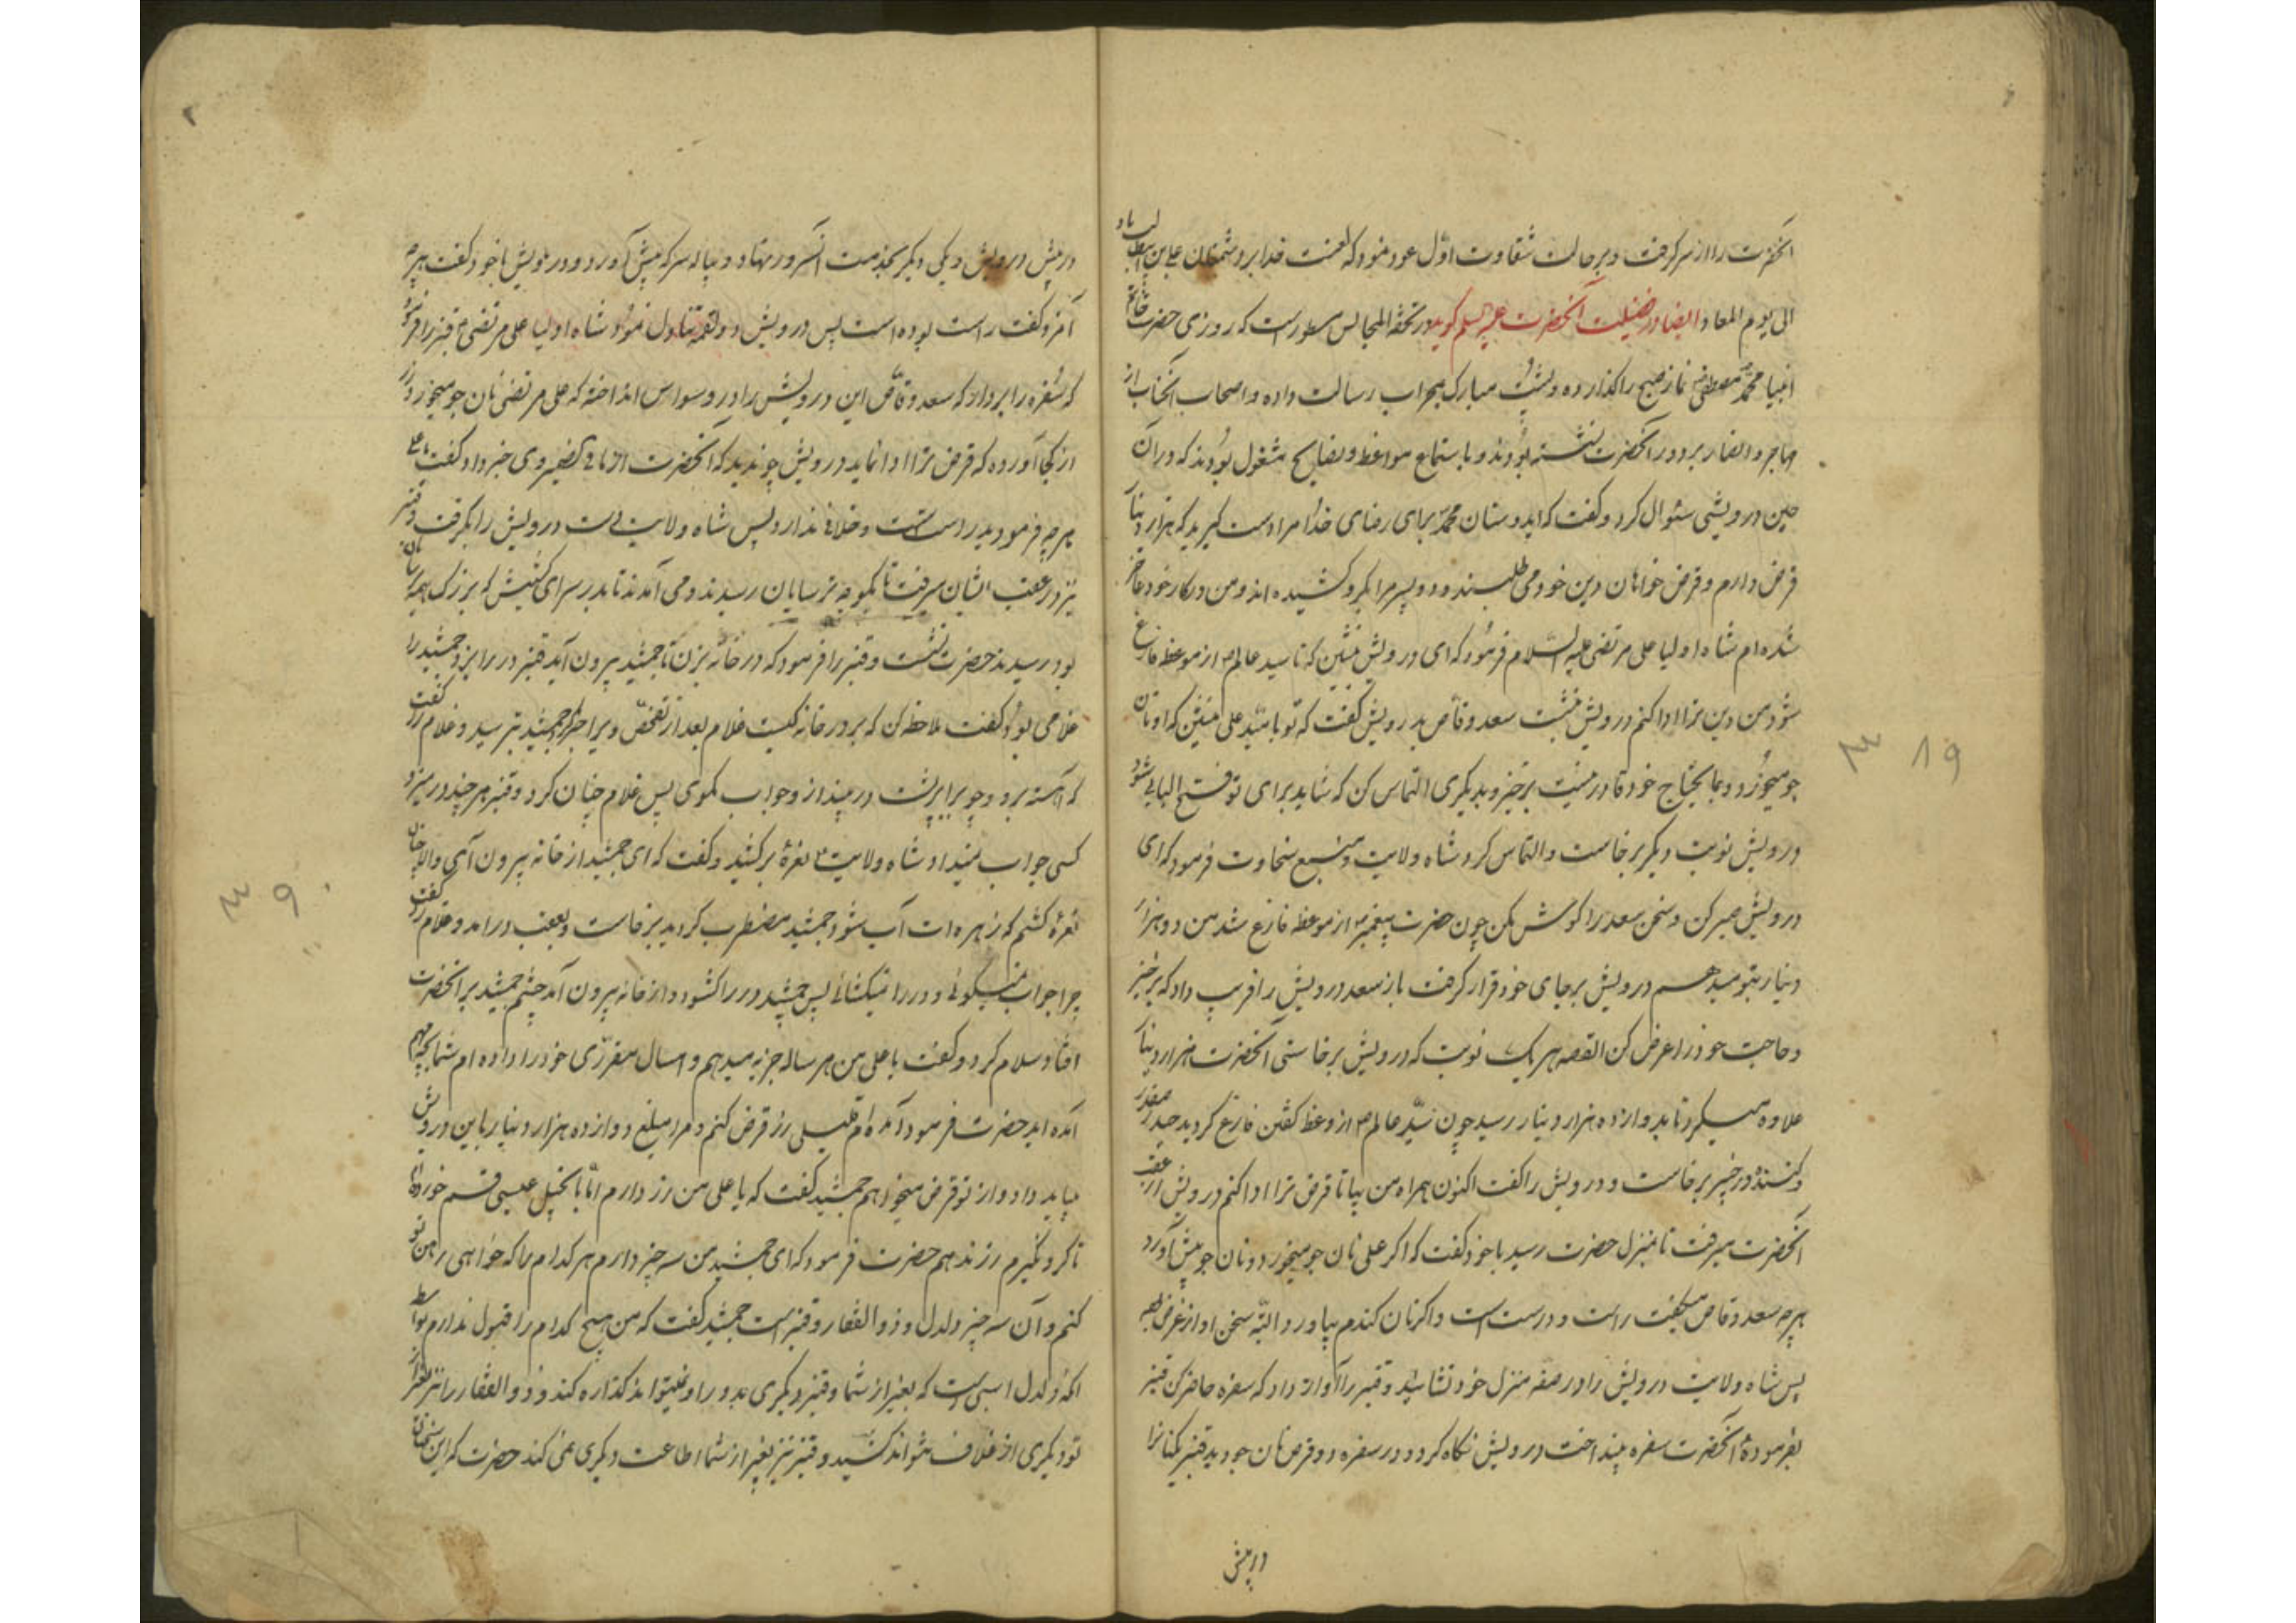 آنحضرت را از سر گرفت و بر حالت شقاوت اول عود نمود که لعنت خدا بر دشمنان علی بن ابیطالب باد
الی یوم المعاد ایضا در فضیلت آنحضرت علیه السلم گوید در تحفة المجالس مسطور است که روزی حضرت خاتم
انبیا محمد مصطفی نماز صبح را گذارده و پشت مبارک بمحراب رسالت داده و اصحاب آنجناب از
مهاجر و انصار بر دور آنحضرت نشسته بودند و باستماع مواعظ و نصایح مشغول بودند که در آن
حین درویشی سئوال کرد و گفت که ایدوستان محمد برای رضای خدا مرا دست گیرید که هزار دینار
قرض دارم و قرض خواهان دین خود می طلبند و دو پسر مرا بگرو کشیده اند و من در کار خود عاجز
شده ام شاه اولیا علی مرتضی علیه السلام فرمود که ای درویش بنشین که تا سید عالم از موعظه فارغ
شود من دین ترا ادا کنم درویش بنشست سعد وقاص بدرویش گفت که تو بامید علی منشین که او نان
جو میخورد و بمایحتاج خود قادر نیست برخیز و بدیگری التماس کن که شاید برای تو فتح البابی شود
درویش نوبت دیگر برخاست و التماس کرد شاه ولایت و منبع سخاوت فرمود که ای
درویش صبر کن و سخن سعد را گوش مکن چون حضرت پیغمبر از موعظه فارغ شد من دو هزار
دینار بتو میدهم درویش بر جای خود قرار گرفت باز سعد درویش را فریب داد که برخیز
و حاجت خود را عرض کن القصه هر یک نوبت که درویش برخاستی آنحضرت هزار دینار
علاوه میکرد تا بدوازده هزار دینار رسید چون سید عالم از وعظ گفتن فارغ گردید حیدر صفدر
و کننده در خیبر برخاست و درویش را گفت اکنون همراه من بیا تا قرض ترا ادا کنم درویش از عقب
آنحضرت میرفت تا بمنزل حضرت رسید با خود گفت که اگر علی نان جو میخورد و نان جو پیش آورد
هرچه سعد وقاص میگفت راست و درست است و اگر نان گندم بیاورد البته سخن او از غرض بود
پس شاه ولایت درویش را در صفه منزل خود نشانید و قنبر را آواز داد که سفره حاضر کن قنبر
بفرموده آنحضرت سفره بینداخت درویش نگاه کرد و در سفره دو قرص نان جو دید قنبر یکنانرا
در پیش
در پیش درویش و یکی دیگر بخدمت آنسرور نهاد و پیاله سرکه پیش آورد و درویش با خود گفت هرچه
آنمرد گفت راست بوده است پس درویش دو لقمه تناول نمود شاه اولیا علی مرتضی قنبر را فرمود
که سفره را بردار که سعد وقاص این درویش را در وسواس انداخته که علی مرتضی نان جو میخورد زر
از کجا آورده که قرض ترا ادا نماید درویش چون دید که آنحضرت از ما فی الضمیر وی خبر داد گفت یا علی
هرچه فرمودید راست است و خلافی ندارد پس شاه ولایت دست درویش را بگرفت و قنبر
نیز در عقب ایشان میرفت تا بکوچه ترسایان رسیدند و می آمدند تا بدر سرای جمشید که بزرگ همه ترسایان
بود رسیدند حضرت بنشست و قنبر را فرمود که در خانه بزن تا جمشید بیرون آید قنبر در را بزد جمشید را
غلامی بود گفت ملاحظه کن که بر در خانه کیست غلام بعد از تفحص ویرا خبر کرد جمشید بترسید و غلام را گفت
که آهسته برو و چوب را بر پشت در بینداز و جواب مگوی پس غلام چنان کرد و قنبر هر چند در میزد
کسی جواب نمیداد شاه ولایت نعره برکشید و گفت که ای جمشید از خانه بیرون آی و الا چنان
نعره کشم که زهره ات آب شود جمشید مضطرب گردید برخاست و بعقب در آمد و غلام را گفت
چرا جواب نمیگوئی و در را نمیگشائی پس جمشید در را گشود و از خانه بیرون آمد چشم جمشید بر آنحضرت
افتاد سلام کرد و گفت یا علی من هر ساله جزیه میدهم و امسال مقرری خود را داده ام شما بچه مهم
آمده اید حضرت فرمود آمده ام قلیلی زر قرض کنم و مرا مبلغ دوازده هزار دینار باین درویش
میباید داد و از تو قرض میخواهم جمشید گفت که یا علی من زر دارم اما بانجیل عیسی قسم خورده ام
تا گرو نگیرم زر ندهم حضرت فرمود که ای جمشید من سه چیز دارم هر کدام را که خواهی رهن تو
کنم و آن سه چیز دلدل و ذوالفقار و قنبر است جمشید گفت که من هیچ کدام را قبول ندارم بواسطه
آنکه دلدل اسبی است که بغیر از شما و قنبر دیگری بدور او نمیتواند گذاره کند و ذوالفقار را نیز بغیر از
تو دیگری از غلاف نتواند کشید و قنبر نیز بغیر از شما اطاعت دیگری نمی کند حضرت که این سخنان